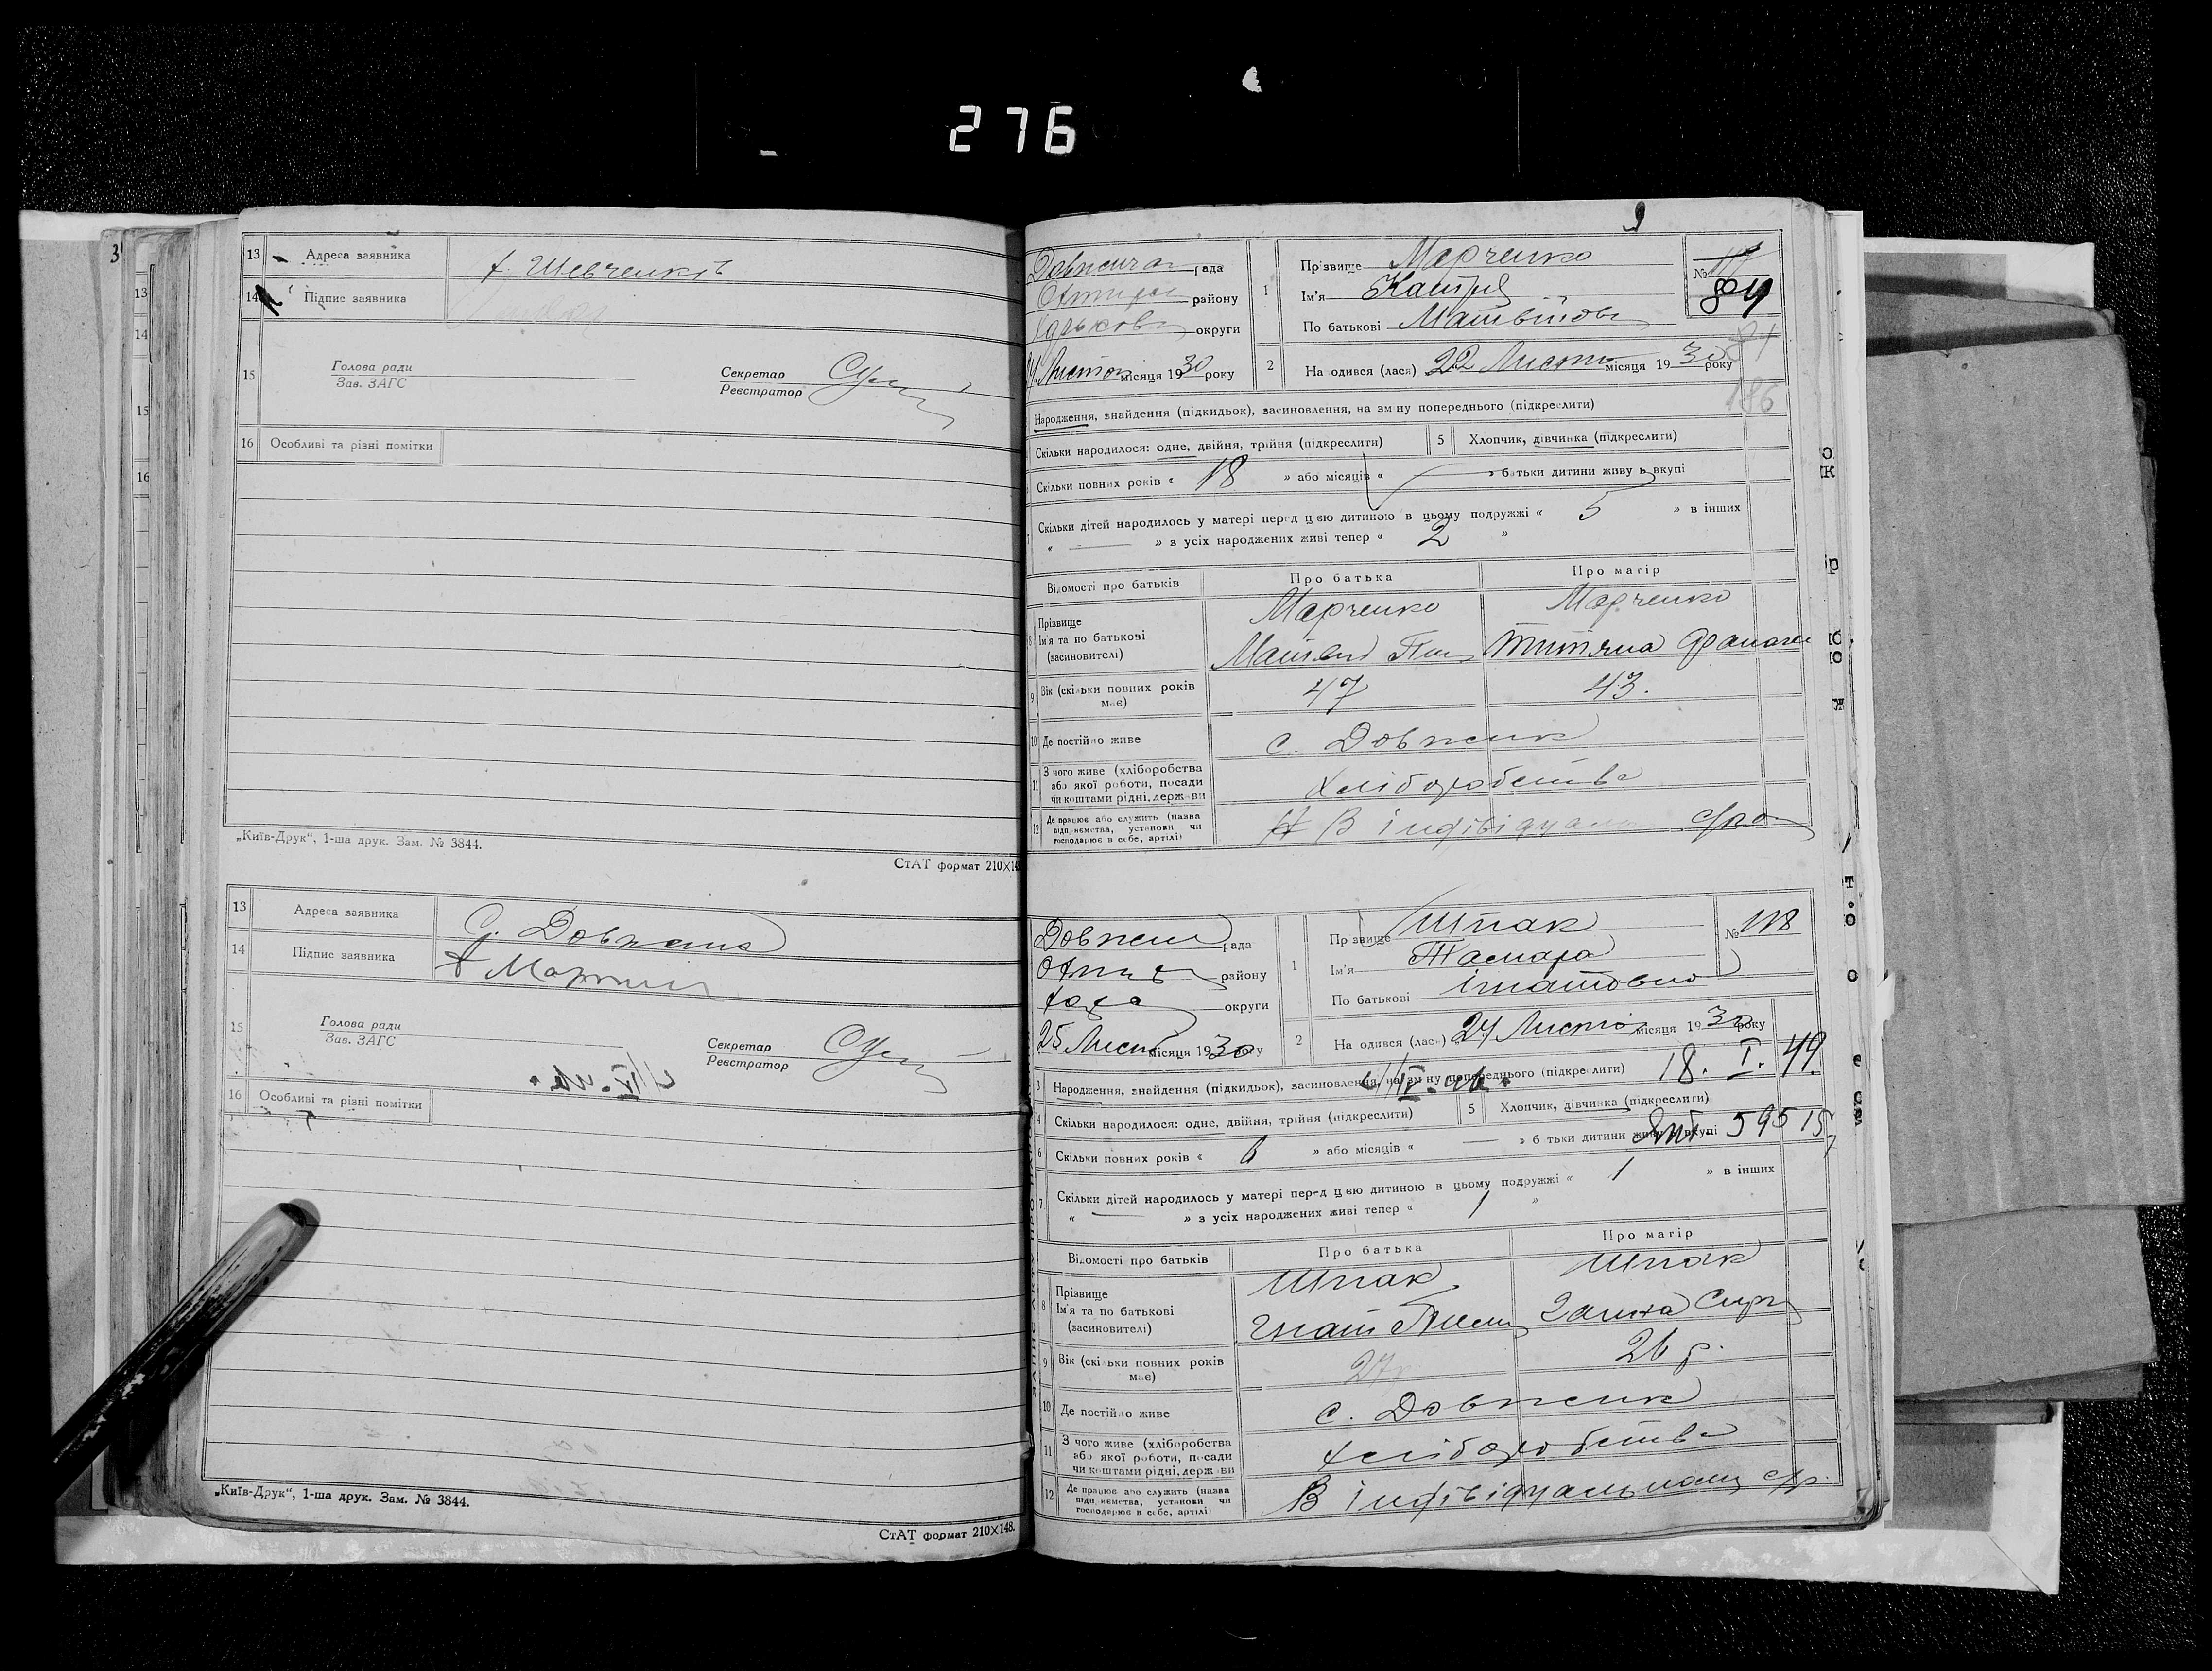 276
13 Адреса заявника х. Шевченків
14 Підпис заявника
15 Голова ради
Зав. ЗАГС
Секретар
Реєстратор
16 Особливі та різні помітки
„Київ-Друк“, 1-ша друк. Зам. № 3844.
СтАТ формат 210X148
13 Адреса заявника С. Довжик
14 Підпис заявника
15 Голова ради
Зав. ЗАГС
Секретар
Реєстратор
16 Особливі та різні помітки
„Київ-Друк“, 1-ша друк. Зам. № 3844.
СтАТ формат 210X148.
9
рада
району
округи
Листоп місяця 1930 року
1 Прізвище Марченко
Ім'я Катря
По батькові Матвійовн
№ 117
84
186
2 Народився (лася) 22 Листоп місяця 1930 року
Народження, знайдення (підкидьок), засиновлення, на зміну попереднього (підкреслити)
Скільки народилося: одне, двійня, трійня (підкреслити) 5 Хлопчик, дівчинка (підкреслити)
Скільки повних років « 18 » або місяців « — » батьки дитини живуть вкупі
Скільки дітей народилось у матері перед цією дитиною в цьому подружжі « 5 » в інших
« — » з усіх народжених живі тепер « 2 »
Відомості про батьків Про батька Про матір
8 Прізвище Марченко Марченко
Ім'я та по батькові Матвій Тит'яна
(засиновителі)
9 Вік (скільки повних років має) 47 43.
10 Де постійно живе с. Довжик
11 З чого живе (хліборобства або якої роботи, посади чи коштами рідні, держави хліборобства
12 Де працює або служить (назва підприємства, установи чи господарює в себе, артілі) В індівідуальн
рада
району
округи
25 Листоп місяця 1930 року
1 Прізвище Шпак
Ім'я Тамара
По батькові Ігнатовна
№ 118
2 Народився (лася) 24 Листоп місяця 1930 року
3 Народження, знайдення (підкидьок), засиновлення, на зміну попереднього (підкреслити) 18. I. 49.
4 Скільки народилося: одне, двійня, трійня (підкреслити) 5 Хлопчик, дівчинка (підкреслити)
6 Скільки повних років « 6 » або місяців « — » батьки дитини живуть вкупі 59515
7 Скільки дітей народилось у матері перед цією дитиною в цьому подружжі « 1 » в інших
« — » з усіх народжених живі тепер « 1 »
Відомості про батьків Про батька Про матір
8 Прізвище Шпак Шпак
Ім'я та по батькові Гнат Ганна
(засиновителі)
9 Вік (скільки повних років має) 27 26 р.
10 Де постійно живе с. Довжик
11 З чого живе (хліборобства або якої роботи, посади чи коштами рідні, держави хліборобства
12 Де працює або служить (назва підприємства, установи чи господарює в себе, артілі) В індівідуальному